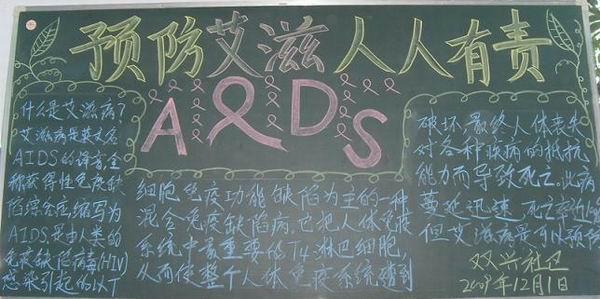 预防艾滋人人有责
AIDS
什么是艾滋病?
艾滋病是英文名
AIDS的译音全
称获得性免疫缺
陷综合症,缩写为
AIDS是由人类的
免疫缺陷病毒(HIV)
感染引起的以T
细胞免疫功能缺陷为主的一种
混合免疫缺陷病,它把人体免疫
系统中最重要的T4淋巴细胞,
从而使整个人体免疫系统遭到
破坏,最终人体丧失
对各种疾病的抵抗
能力而导致死亡。此病
蔓延迅速,死亡率
但艾滋病是可以预防
双兴社区
2009年12月1日